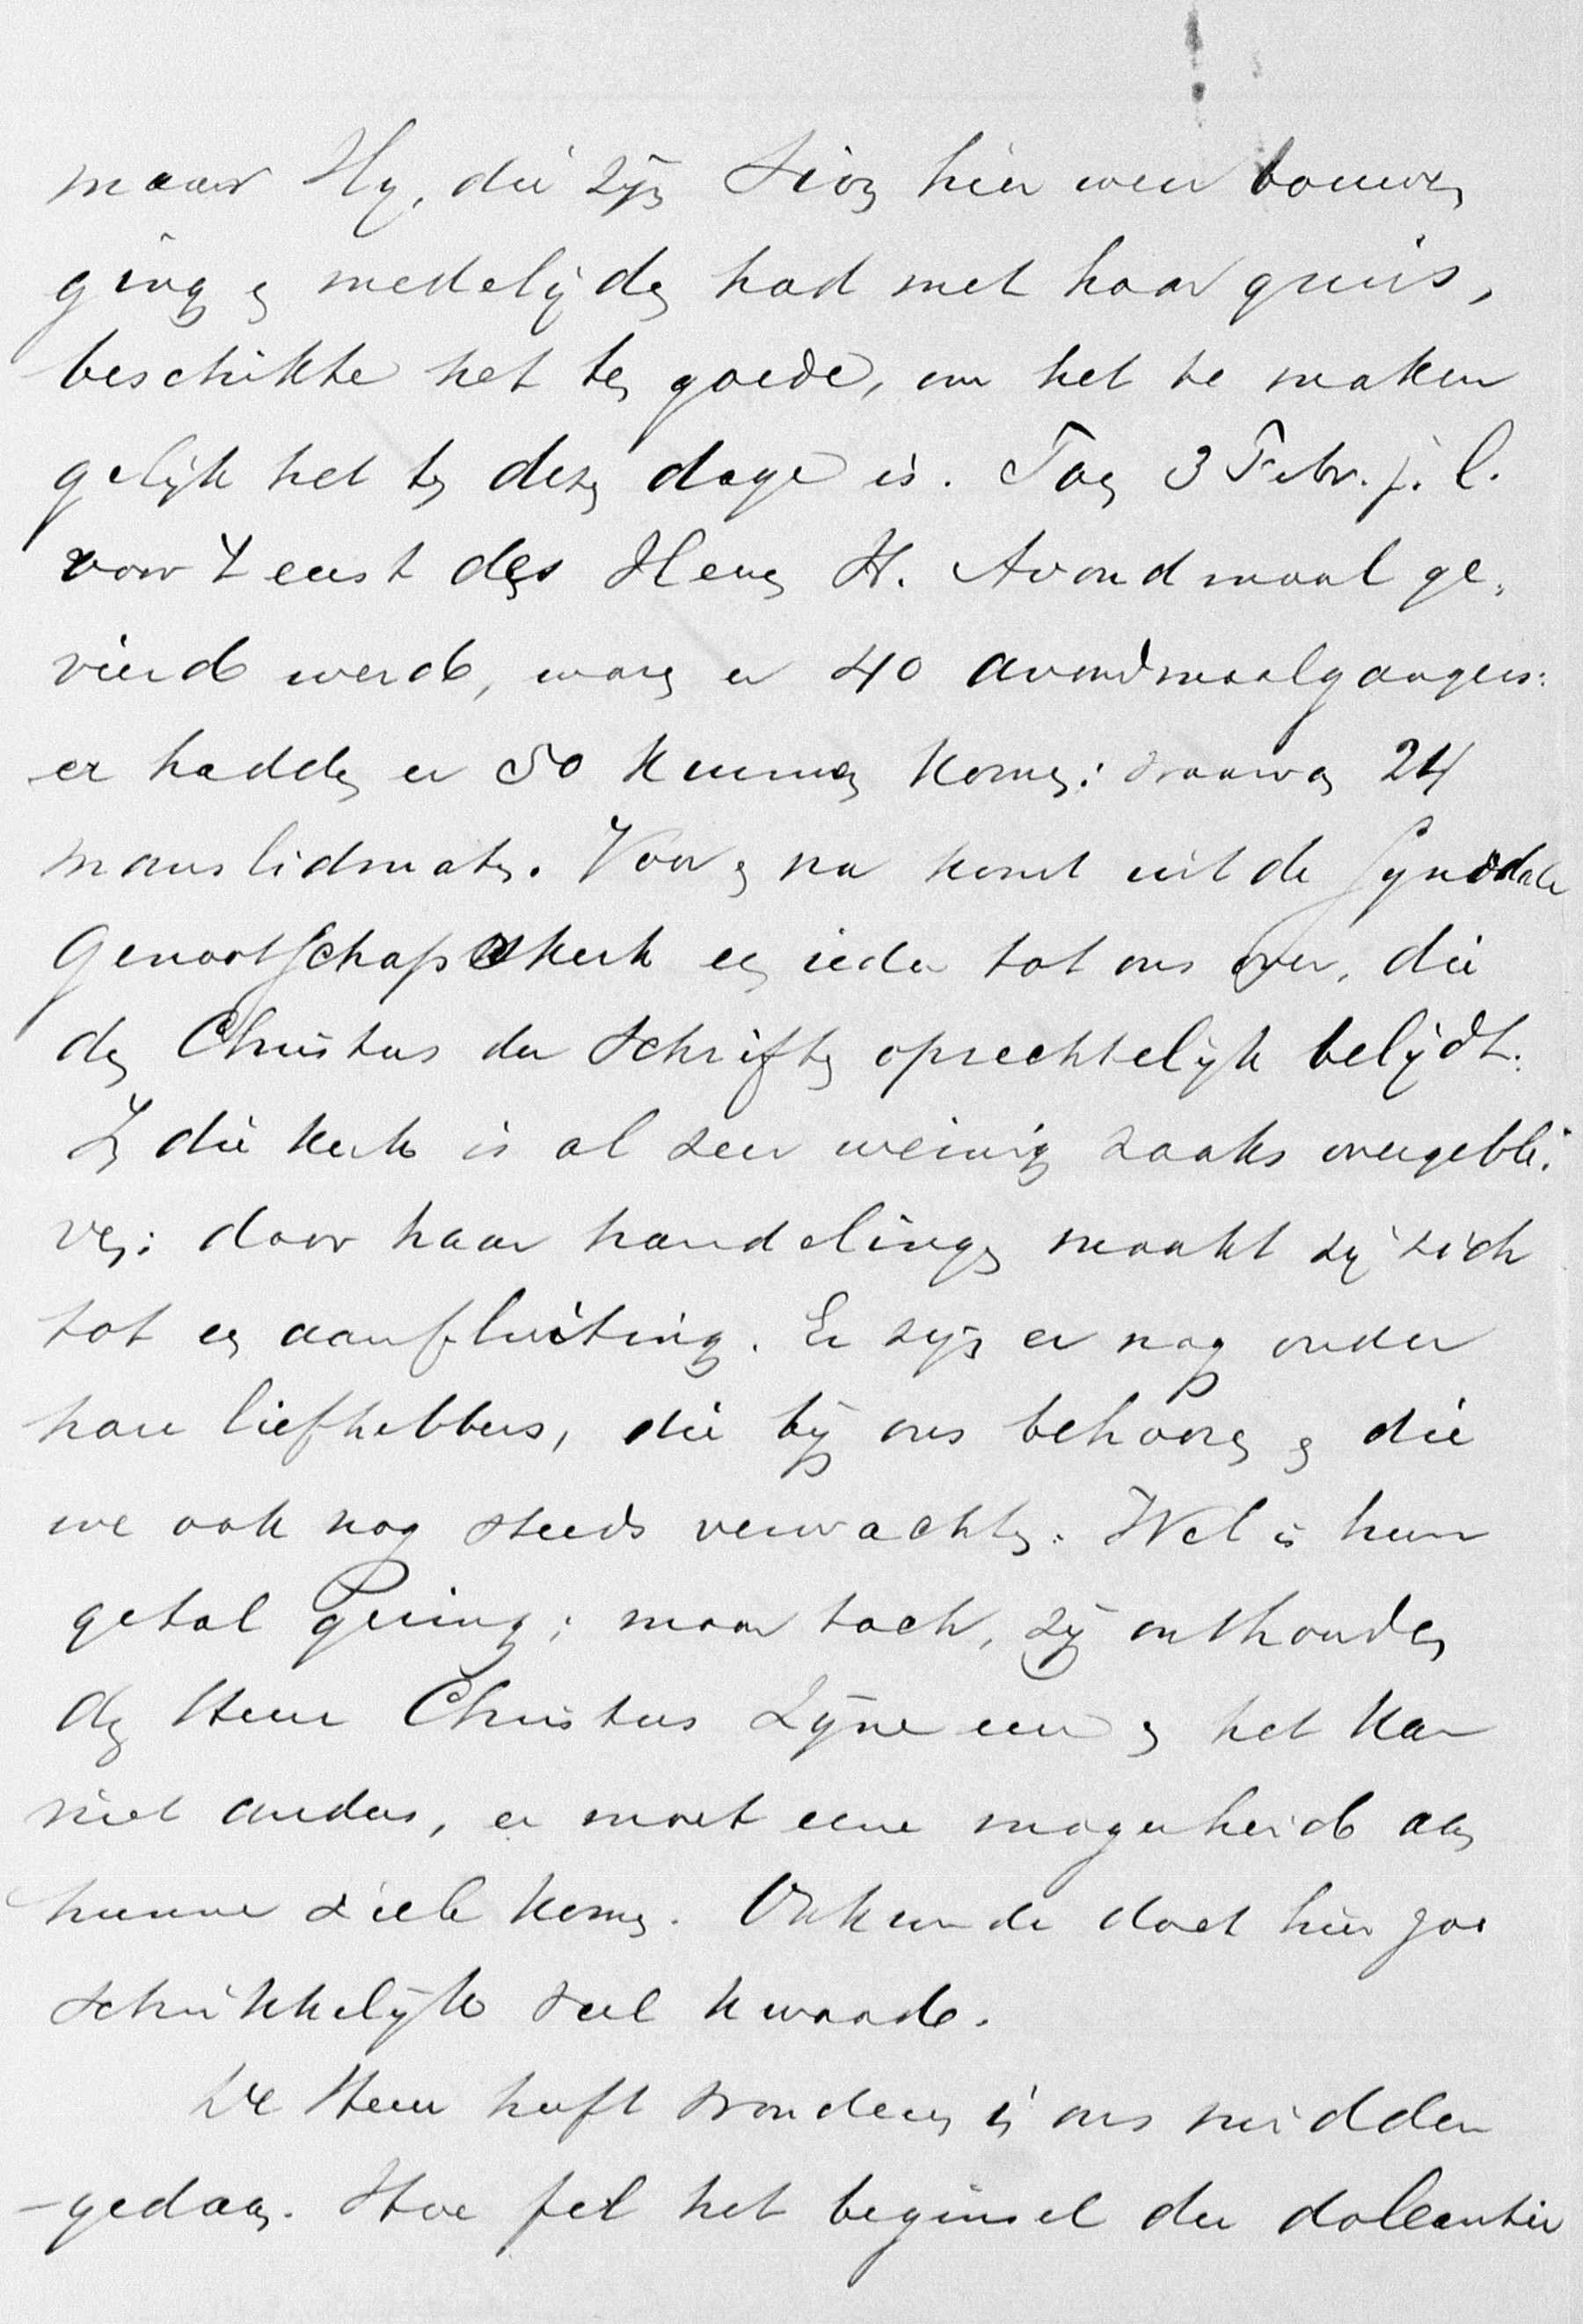 maar Hij, die zijn Sion hier weer bouwen
ging en medelijden had met haar gruis,
beschikte het ten goede, om het te maken
gelijk het te dezen dage is. Toen 3 Febr. j.l.
voor 't eerst des Heeren H. Avondmaal ge-
vierd werd, waren er 40 avondmaalgangers:
er hadden er 50 kunnen komen: waarvan 24
manslidmaten. Voor en na komt uit de Synodale
Genootschapskerk een ieder tot ons over, die
den Christus der Schriften oprechtelijk belijdt.
In die kerk is al zeer weinig zaaks overgeble-
ven: door haar handelingen maakt zij zich
tot een aanfluiting. Er zijn er nog onder
hare liefhebbers, die bij ons behooren en die
we ook nog steeds verwachten. Wel is hun
getal gering; maar toch, zij onthouden
den Heere Christus Zijne eer en het kan
niet anders, er moet eene magerheid aan
hunne ziele komen. Onkunde doet hier zoo
schrikkelijk veel kwaad.
De Heere heeft wonderen in ons midden
gedaan. Hoe fel het beginsel der doleantie